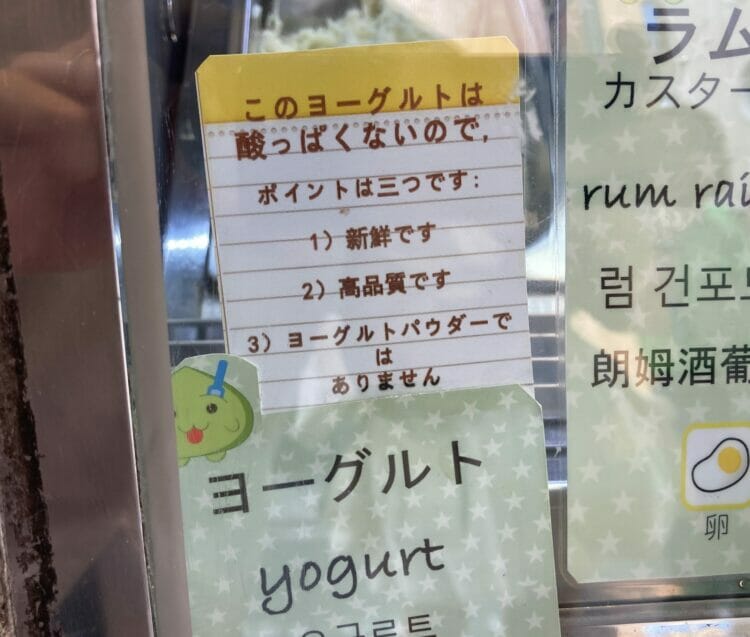 このヨーグルトは
酸っぱくないので,
ポイントは三つです:
1) 新鮮です
2) 高品質です
3) ヨーグルトパウダーで
は
ありません
ヨーグルト
yogurt
ラム
カスター
rum rai
럼 건포
朗姆酒葡
卵